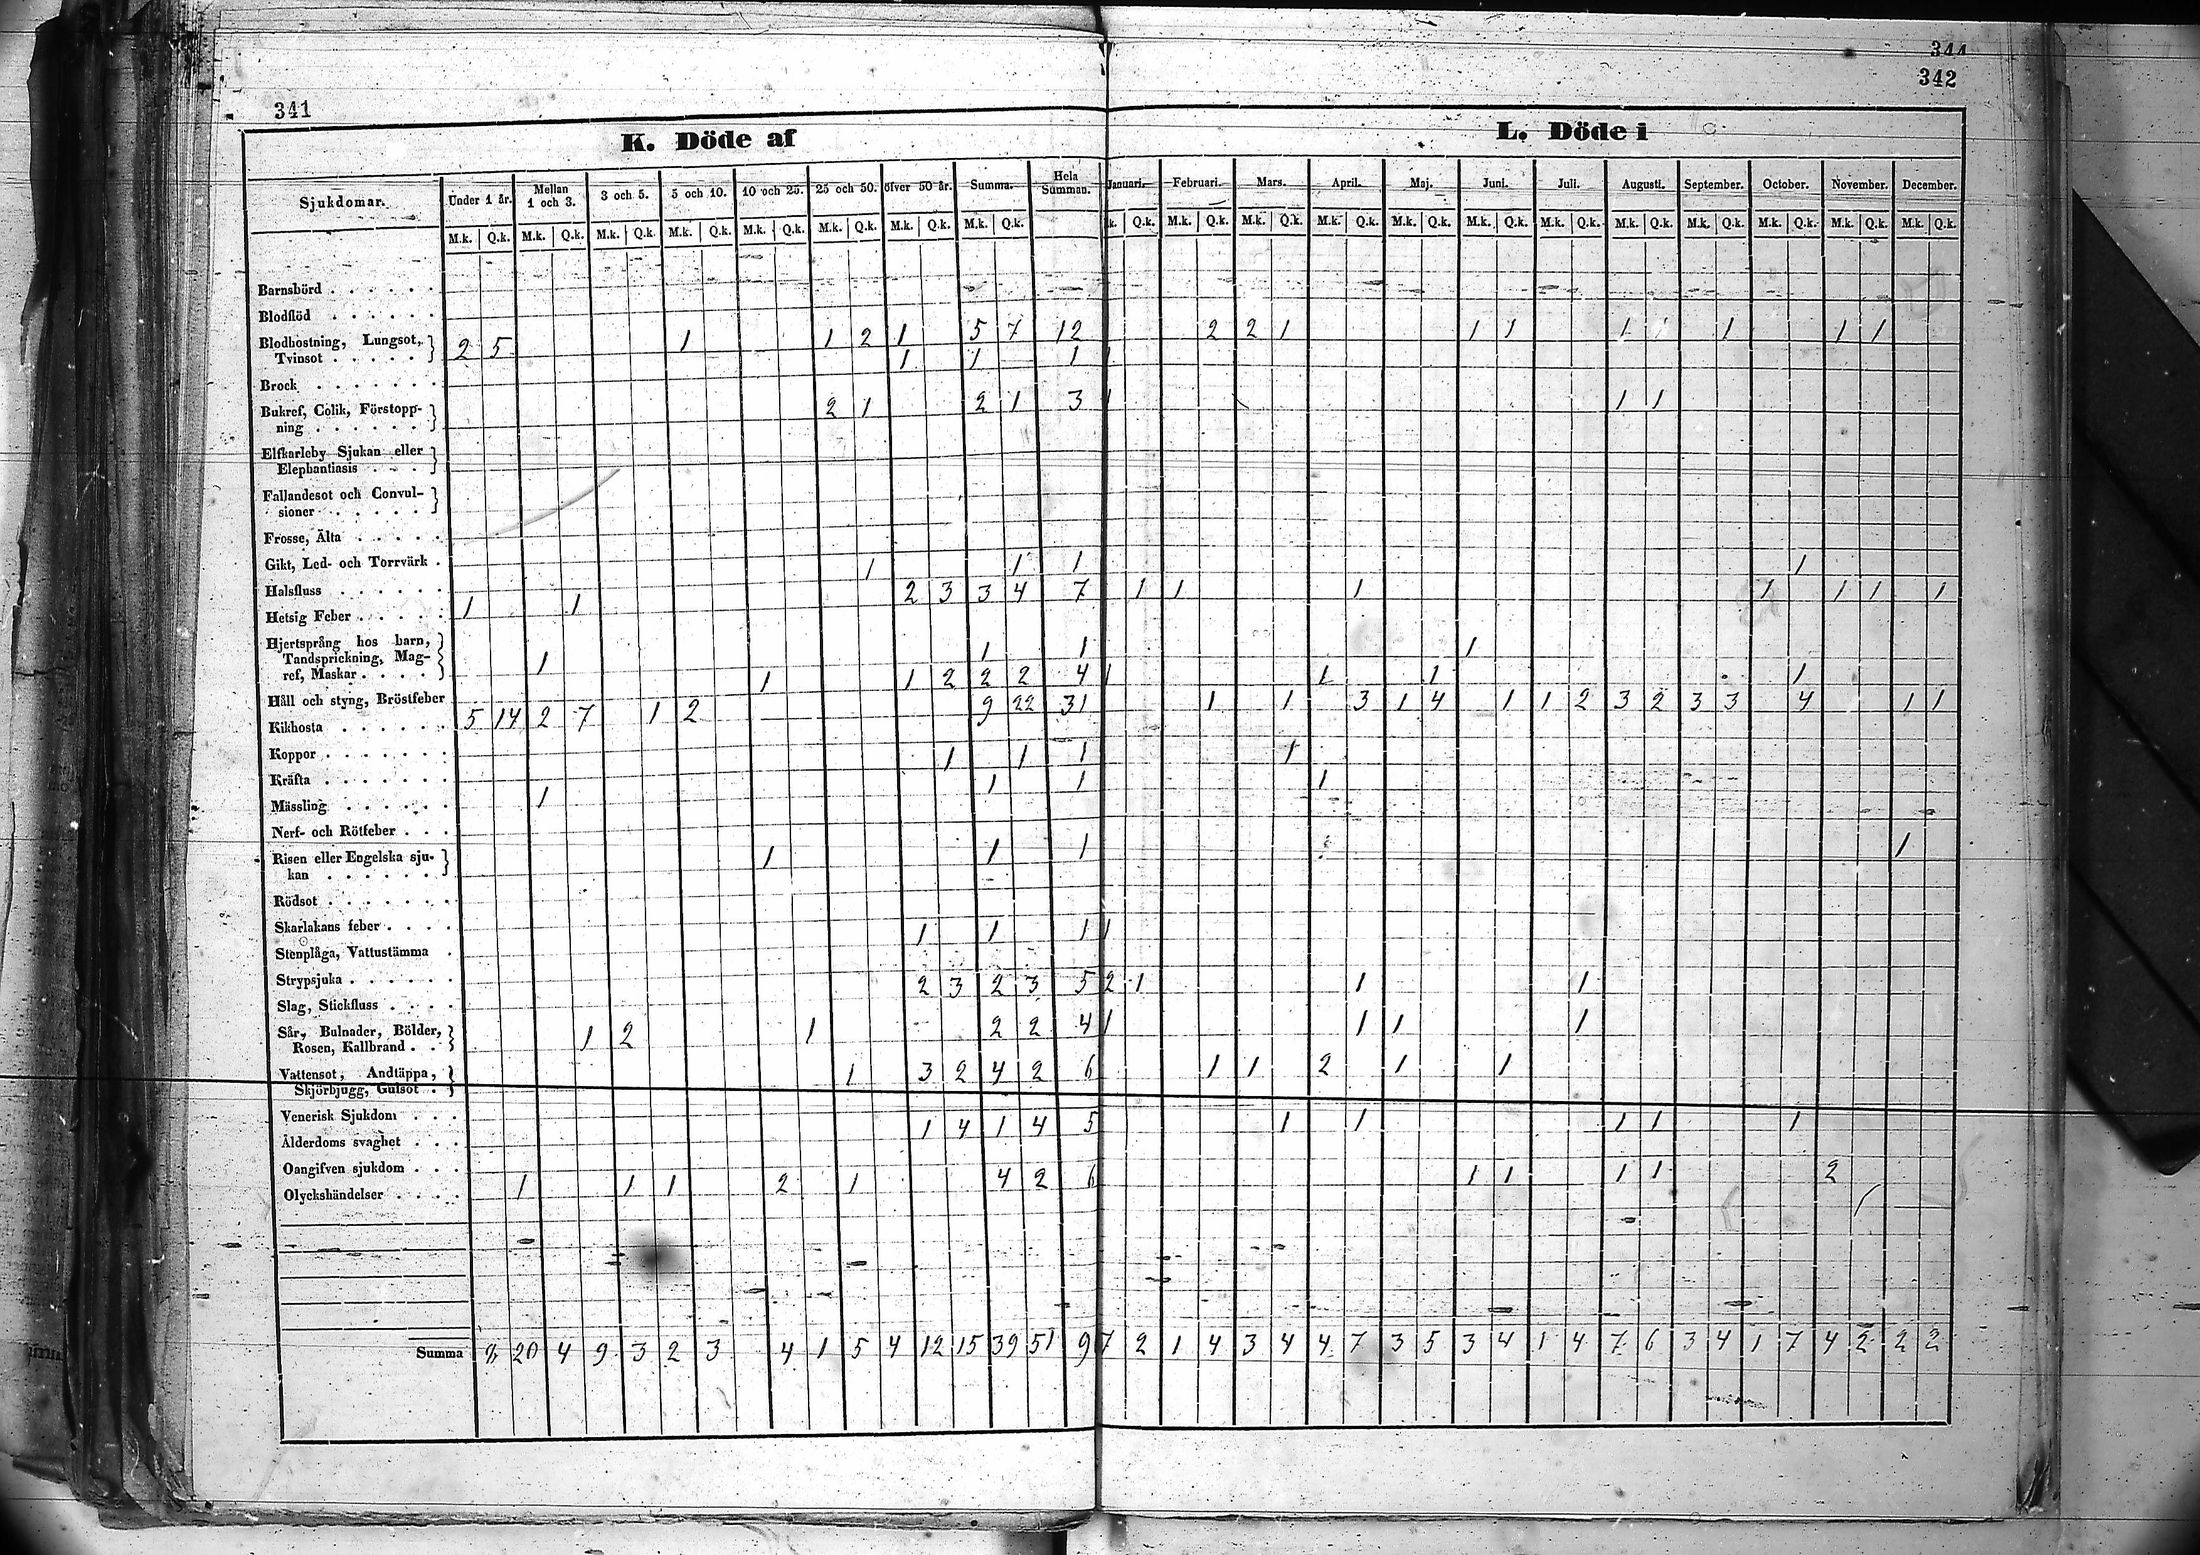 344
342
341
K. Döde af
L. Döde i
Sjukdomar. Under 1 år. Mellan 1 och 3. 3 och 5. 5 och 10. 10 och 25. 25 och 50. öfver 50 år. Summa. Hela Summan. Januari. Februari. Mars. April. Maj. Juni. Juli. Augusti. September. October. November. December.
M.k. Q.k. M.k. Q.k. M.k. Q.k. M.k. Q.k. M.k. Q.k. M.k. Q.k. M.k. Q.k. M.k. Q.k. k. Q.k. M.k. Q.k. M.k. Q.k. M.k. Q.k. M.k. Q.k. M.k. Q.k. M.k. Q.k. M.k. Q.k. M.k. Q.k. M.k. Q.k. M.k. Q.k. M.k. Q.k.
Barnsbörd
Blodflöd
Blodhostning, Lungsot,
Tvinsot 2 5 1 1 2 1 5 7 12 2 2 1 1 1 1 1 1 1 1
Brock 1 1 1 1
Bukref, Colik, Förstopp-
ning 2 1 2 1 3 1 1 1
Elfkarleby Sjukan eller
Elephantiasis
Fallandesot och Convul-
sioner
Frosse, Älta
Gikt, Led- och Torrvärk
Halsfluss 1 1 1 1
Hetsig Feber 1 1 2 3 3 4 7 1 1 1 1 1 1 1
Hjertsprång hos barn,
Tandsprickning, Mag-
ref, Maskar 1 1 1 1
Håll och styng, Bröstfeber 1 1 2 2 2 4 1 1 1 1
Kikhosta 5 14 2 7 1 2 9 22 31 1 1 3 1 4 1 1 2 3 2 3 3 4 1 1
Koppor
Kräfta 1 1 1 1
Mässling 1 1 1 1
Nerf- och Rötfeber
Risen eller Engelska sju-
kan 1 1 1 1
Rödsot
Skarlakans feber
Stenplåga, Vattustämma 1 1 1 1
Strypsjuka
Slag, Stickfluss 2 3 2 3 5 2 1 1 1
Sår, Bulnader, Bölder,
Rosen, Kallbrand 1 2 1 2 2 4 1 1 1 1
Vattensot, Andtäppa,
Skjörbjugg, Gulsot 1 3 2 4 2 6 1 1 2 1 1
Venerisk Sjukdom
Ålderdoms svaghet 1 4 1 4 5 1 1 1 1 1
Oangifven sjukdom
Olyckshändelser 1 1 1 2 1 4 2 6 1 1 1 1 2
Summa 8 20 4 9 3 2 3 4 1 5 4 12 15 39 51 9 7 2 1 4 3 4 4 7 3 5 3 4 1 4 7 6 3 4 1 7 4 2 2 2